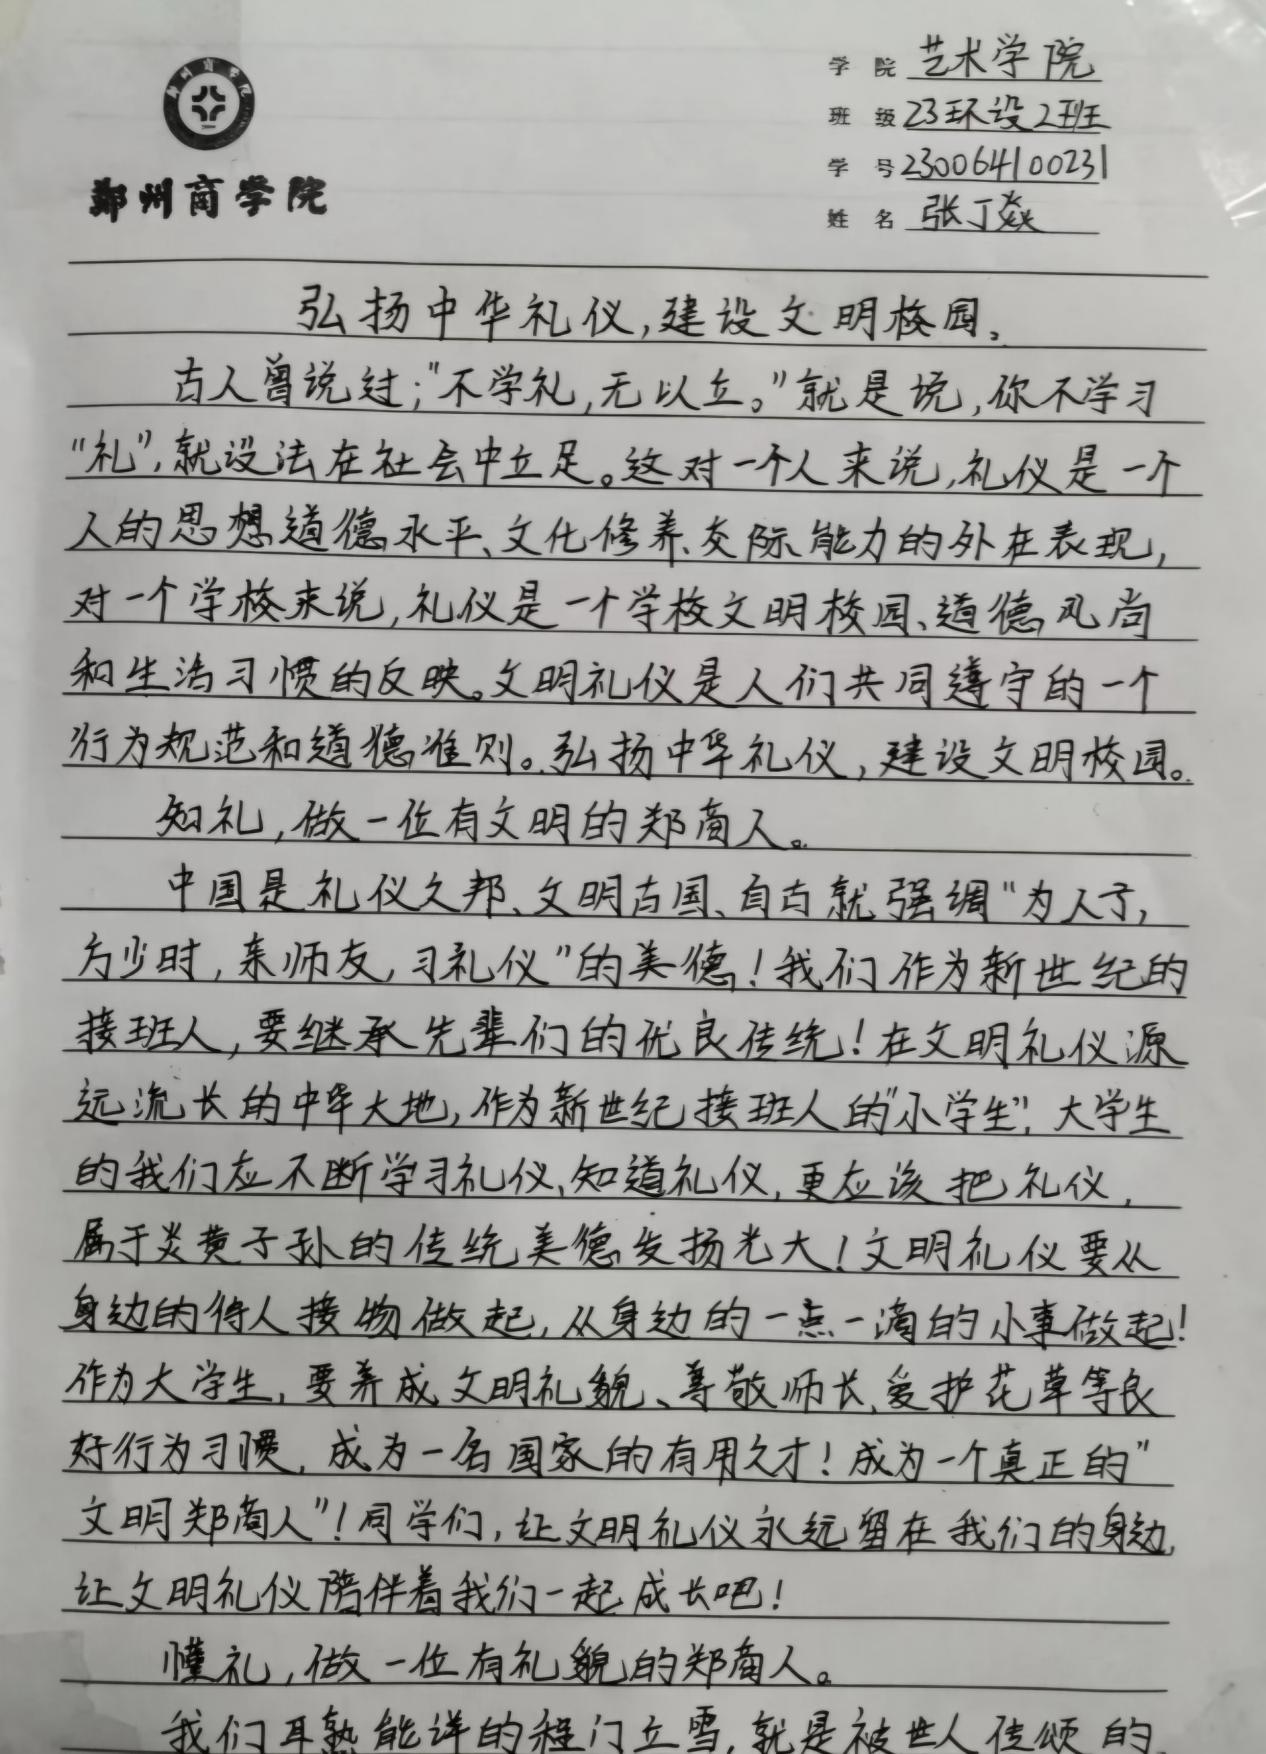 郑州商学院
学院 艺术学院
班级 23环设2班
学号 230064100231
姓名 张丁焱
弘扬中华礼仪,建设文明校园。
古人曾说过;"不学礼,无以立。"就是说,你不学习
"礼",就没法在社会中立足。这对一个人来说,礼仪是一个
人的思想道德水平、文化修养、交际能力的外在表现,
对一个学校来说,礼仪是一个学校文明校园、道德风尚
和生活习惯的反映。文明礼仪是人们共同遵守的一个
行为规范和道德准则。弘扬中华礼仪,建设文明校园。
知礼,做一位有文明的郑商人。
中国是礼仪之邦、文明古国、自古就强调"为人子,
方少时,亲师友,习礼仪"的美德!我们作为新世纪的
接班人,要继承先辈们的优良传统!在文明礼仪源
远流长的中华大地,作为新世纪接班人的"小学生",大学生
的我们应不断学习礼仪、知道礼仪,更应该把礼仪,
属于炎黄子孙的传统美德发扬光大!文明礼仪要从
身边的待人接物做起,从身边的一点一滴的小事做起!
作为大学生,要养成文明礼貌、尊敬师长、爱护花草等良
好行为习惯,成为一名国家的有用之才!成为一个真正的"
文明郑商人"!同学们,让文明礼仪永远留在我们的身边,
让文明礼仪陪伴着我们一起成长吧!
懂礼,做一位有礼貌的郑商人。
我们耳熟能详的程门立雪,就是被世人传颂的